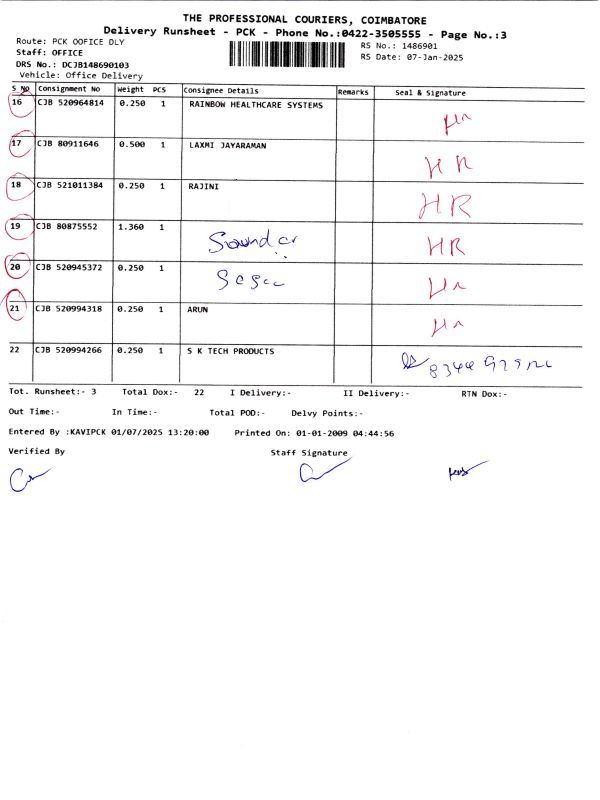 THE PROFESSIONAL COURIERS, COIMBATORE
Delivery Runsheet - PCK - Phone No.:0422-3505555 - Page No.:3
Route: PCK OOFICE DLY
RS No.: 1486901
Staff: OFFICE
RS Date: 07-Jan-2025
DRS No.: DCJB148690103
Vehicle: Office Delivery
S NO Consignment No Weight PCS Consignee Details Remarks Seal & Signature
16 CJB 520964814 0.250 1 RAINBOW HEALTHCARE SYSTEMS
17 CJB 80911646 0.500 1 LAXMI JAYARAMAN HR
18 CJB 521011384 0.250 1 RAJINI HR
19 CJB 80875552 1.360 1 HR
20 CJB 520945372 0.250 1
21 CJB 520994318 0.250 1 ARUN
22 CJB 520994266 0.250 1 S K TECH PRODUCTS
Tot. Runsheet:- 3 Total Dox:- 22 I Delivery:- II Delivery:- RTN Dox:-
Out Time:- In Time:- Total POD:- Delvy Points:-
Entered By :KAVIPCK 01/07/2025 13:20:00 Printed On: 01-01-2009 04:44:56
Verified By Staff Signature